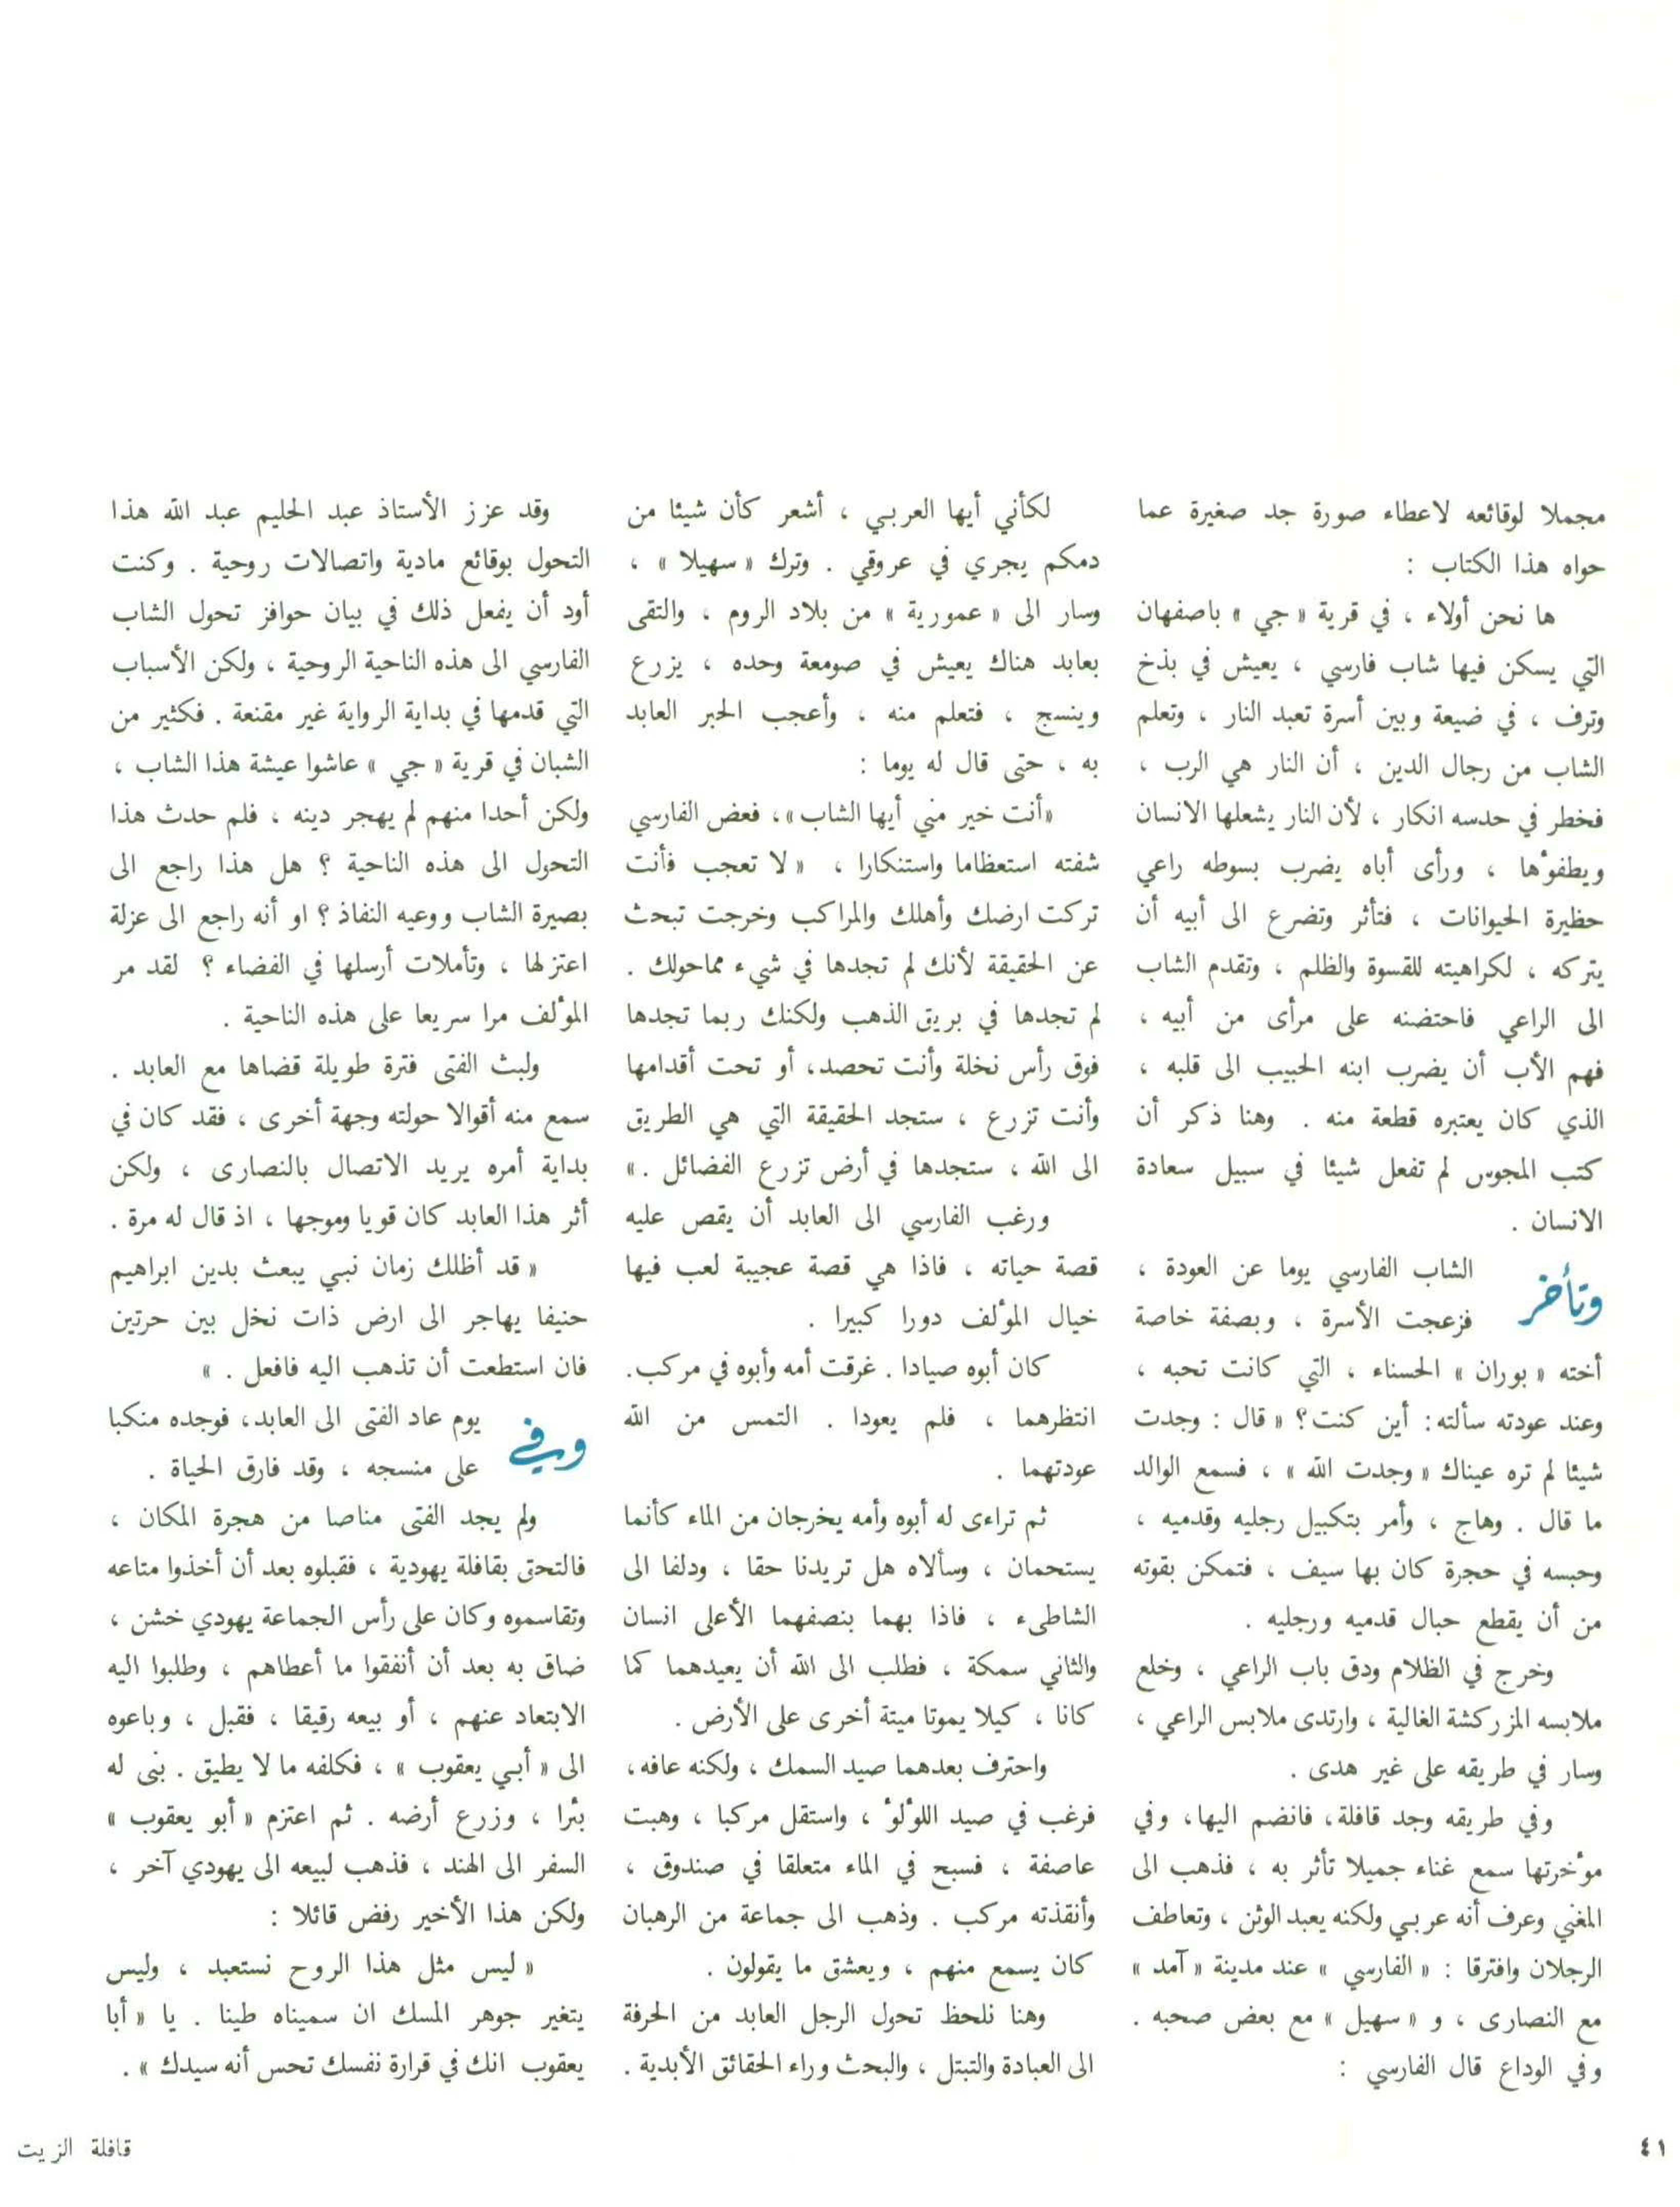 مجملا لوقائعه لاعطاء صورة جد صغيرة عما
حواه هذا الكتاب :
ها نحن أولاء ، في قرية « جي » باصفهان
التي يسكن فيها شاب فارسي ، يعيش في بذخ
وترف ، في ضيعة وبين أسرة تعبد النار ، وتعلم
الشاب من رجال الدين ، أن النار هي الرب ،
فخطر في حدسه انكار ، لأن النار يشعلها الانسان
ويطفوها ، ورأى أباه يضرب بسوطه راعي
حظيرة الحيوانات ، فتأثر وتضرع الى أبيه أن
يتركه ، لكراهيته للقسوة والظلم ، وتقدم الشاب
الى الراعي فاحتضنه على مرأى من أبيه ،
فهم الأب أن يضرب ابنه الحبيب الى قلبه ،
الذي كان يعتبره قطعة منه . وهنا ذكر أن
كتب المجوس لم تفعل شيئا في سبيل سعادة
الانسان .
وتأخر الشاب الفارسي يوما عن العودة ،
فزعجت الأسرة ، وبصفة خاصة
أخته « بوران » الحسناء ، التي كانت تحبه ،
وعند عودته سألته : أين كنت؟ « قال : وجدت
شيئا لم تره عيناك « وجدت الله » ، فسمع الوالد
ما قال . وهاج ، وأمر بتكبيل رجليه وقدميه ،
وحبسه في حجرة كان بها سيف ، فتمكن بقوته
من أن يقطع حبال قدميه ورجليه .
وخرج في الظلام ودق باب الراعي ، وخلع
ملابسه المزركشة الغالية ، وارتدى ملابس الراعي ،
وسار في طريقه على غير هدى .
وفي طريقه وجد قافلة ، فانضم اليها ، وفي
موخرتها سمع غناء جميلا تأثر به ، فذهب الى
المغني وعرف أنه عربي ولكنه يعبد الوثن ، وتعاطف
الرجلان وافترقا : « الفارسي » عند مدينة « آمد »
مع النصارى ، و « سهيل » مع بعض صحبه .
وفي الوداع قال الفارسي :
لكأني أيها العربي ، أشعر كأن شيئا من
دمكم يجري في عروقي . وترك « سهيلا » ،
وسار الى « عمورية » من بلاد الروم ، والتقى
بعابد هناك يعيش في صومعة وحده ، يزرع
وينسج ، فتعلم منه ، وأعجب الحبر العابد
به ، حتى قال له يوما :
«أنت خير مني أيها الشاب» ، فعض الفارسي
شفته استعظاما واستنكارا ، « لا تعجب فأنت
تركت ارضك وأهلك والمراكب وخرجت تبحث
عن الحقيقة لأنك لم تجدها في شيء مماحولك .
لم تجدها في بريق الذهب ولكنك ربما تجدها
فوق رأس نخلة وأنت تحصد، أو تحت أقدامها
وأنت تزرع ، ستجد الحقيقة التي هي الطريق
الى الله ، ستجدها في أرض تزرع الفضائل . »
ورغب الفارسي الى العابد أن يقص عليه
قصة حياته ، فاذا هي قصة عجيبة لعب فيها
خيال المؤلف دورا كبيرا .
كان أبوه صيادا . غرقت أمه وأبوه في مركب.
انتظرهما ، فلم يعودا . التمس من الله
عودتهما .
ثم تراءى له أبوه وأمه يخرجان من الماء كأنما
يستحمان ، وسألاه هل تريدنا حقا ، ودلفا الى
الشاطىء ، فاذا بهما بنصفهما الأعلى انسان
والثاني سمكة ، فطلب الى الله أن يعيدهما كما
كانا ، كيلا يموتا ميتة أخرى على الأرض .
واحترف بعدهما صيد السمك ، ولكنه عافه ،
فرغب في صيد اللؤلؤ ، واستقل مركبا ، وهبت
عاصفة ، فسبح في الماء متعلقا في صندوق ،
وأنقذته مركب . وذهب الى جماعة من الرهبان
كان يسمع منهم ، ويعشق ما يقولون .
وهنا نلحظ تحول الرجل العابد من الحرفة
الى العبادة والتبتل ، والبحث وراء الحقائق الأبدية .
وقد عزز الأستاذ عبد الحليم عبد الله هذا
التحول بوقائع مادية واتصالات روحية . وكنت
أود أن يفعل ذلك في بيان حوافز تحول الشاب
الفارسي الى هذه الناحية الروحية ، ولكن الأسباب
التي قدمها في بداية الرواية غير مقنعة . فكثير من
الشبان في قرية « جي » عاشوا عيشة هذا الشاب ،
ولكن أحدا منهم لم يهجر دينه ، فلم حدث هذا
التحول الى هذه الناحية ؟ هل هذا راجع الى
بصيرة الشاب ووعيه النفاذ ؟ او أنه راجع الى عزلة
اعتزلها ، وتأملات أرسلها في الفضاء ؟ لقد مر
المؤلف مرا سريعا على هذه الناحية .
ولبث الفتى فترة طويلة قضاها مع العابد .
سمع منه أقوالا حولته وجهة أخرى ، فقد كان في
بداية أمره يريد الاتصال بالنصارى ، ولكن
أثر هذا العابد كان قويا وموجها ، اذ قال له مرة .
« قد أظلك زمان نبي يبعث بدين ابراهيم
حنيفا يهاجر الى ارض ذات نخل بين حرتين
فان استطعت أن تذهب اليه فافعل . »
وفي يوم عاد الفتى الى العابد، فوجده منكبا
على منسجه ، وقد فارق الحياة .
ولم يجد الفتى مناصا من هجرة المكان ،
فالتحق بقافلة يهودية ، فقبلوه بعد أن أخذوا متاعه
وتقاسموه وكان على رأس الجماعة يهودي خشن ،
ضاق به بعد أن أنفقوا ما أعطاهم ، وطلبوا اليه
الابتعاد عنهم ، أو بيعه رقيقا ، فقبل ، وباعوه
الى « أبي يعقوب » ، فكلفه ما لا يطيق . بنى له
بئرا ، وزرع أرضه . ثم اعتزم « أبو يعقوب »
السفر الى الهند ، فذهب لبيعه الى يهودي آخر ،
ولكن هذا الأخير رفض قائلا :
« ليس مثل هذا الروح نستعبد ، وليس
يتغير جوهر المسك ان سميناه طينا . يا « أبا
يعقوب انك في قرارة نفسك تحس أنه سيدك » .
٤١
قافلة الزيت